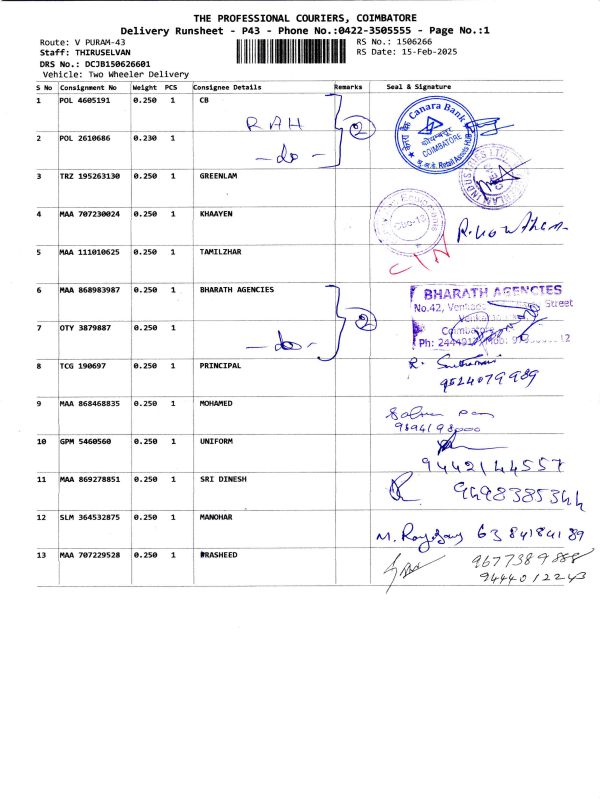 THE PROFESSIONAL COURIERS, COIMBATORE
Delivery Runsheet - P43 - Phone No.:0422-3505555 - Page No.:1
Route: V PURAM-43 RS No.: 1506266
Staff: THIRUSELVAN RS Date: 15-Feb-2025
DRS No.: DCJB150626601
Vehicle: Two Wheeler Delivery
S No Consignment No Weight PCS Consignee Details Remarks Seal & Signature
1 POL 4605191 0.250 1 CB
RAH 2
Canara Bank
केनरा बैंक
कोयम्बत्तूर
COIMBATORE
Retail Assets HUB
2 POL 2610686 0.230 1
-do-
3 TRZ 195263130 0.250 1 GREENLAM
4 MAA 707230024 0.250 1 KHAAYEN
5 MAA 111010625 0.250 1 TAMILZHAR
6 MAA 868983987 0.250 1 BHARATH AGENCIES
2
BHARATH AGENCIES
No.42, Street
Coimbatore
Ph:
7 OTY 3879887 0.250 1
-do-
8 TCG 190697 0.250 1 PRINCIPAL
9524079989
9 MAA 868468835 0.250 1 MOHAMED
9894198000
10 GPM 5460560 0.250 1 UNIFORM
9442144557
11 MAA 869278851 0.250 1 SRI DINESH
9498385344
12 SLM 364532875 0.250 1 MANOHAR
6384184189
13 MAA 707229528 0.250 1 PRASHEED
9677389888
9444012243